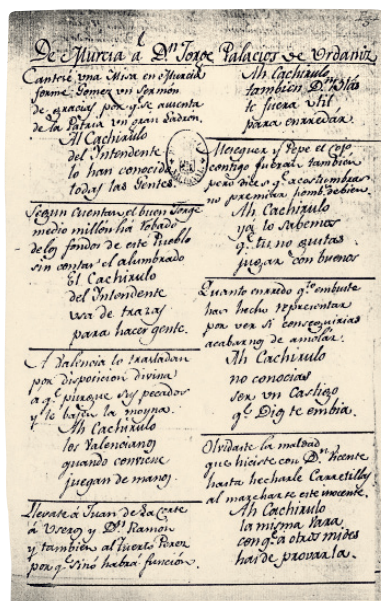 De Murcia á Dn Jorge Palacios de Urdaniz
Cantese una Misa en Murcia
forme Gomez un Sermón
de gracias por qe se ausenta
de la Patria un gran Ladron.
Ah Cachirulo
del Intendente
lo han conocido
todas las Gentes.
Segun cuentan el buen Jorge
medio millon ha robado
de los fondos de este Pueblo
sin contar el alumbrado
El Cachirulo
del Intendente
usa de trazas
para hacer gente.
A Valencia lo trasladan
por disposicion divina
a qe purgue sus pecados
y le bajen la
Ah Cachirulo
los Valencianos
quando conviene
juegan de manos.
Llevate á Juan de la Corte
á Usero y Dn Ramon
y tambien al tuerto Perez
por qe sinó habrá función.
Ah Cachirulo
tambien Dn Blás
te fuera util
para enrredar.
Melguer y Pepe el Cojo
contigo fueran tambien
pero dices qe acostumbras
no premiar homb. de bien.
Ah Cachirulo
ya lo sabemos
qe tu no gustas
jugar con buenos
Quanto enrredo qto embuste
has hecho representar
por ver si conseguirias
acabarnos de amolar.
Ah Cachirulo
no conocias
ser un Castigo
qe Dios te embia.
Olvidaste la maldad
que hiciste con Dn Vicente
hasta hecharle Carretillas
al marcharse este inocente.
Ah Cachirulo
la misma Vara
con qe a otros mides
has de provarla.